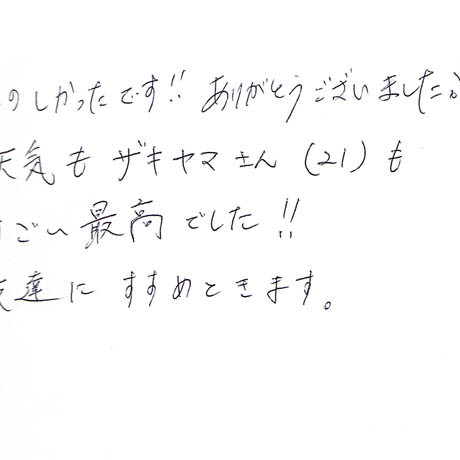 のしかったです!! ありがとうございました
天気も ザキヤマさん (21) も
ごい 最高でした !!
友達に すすめときます。